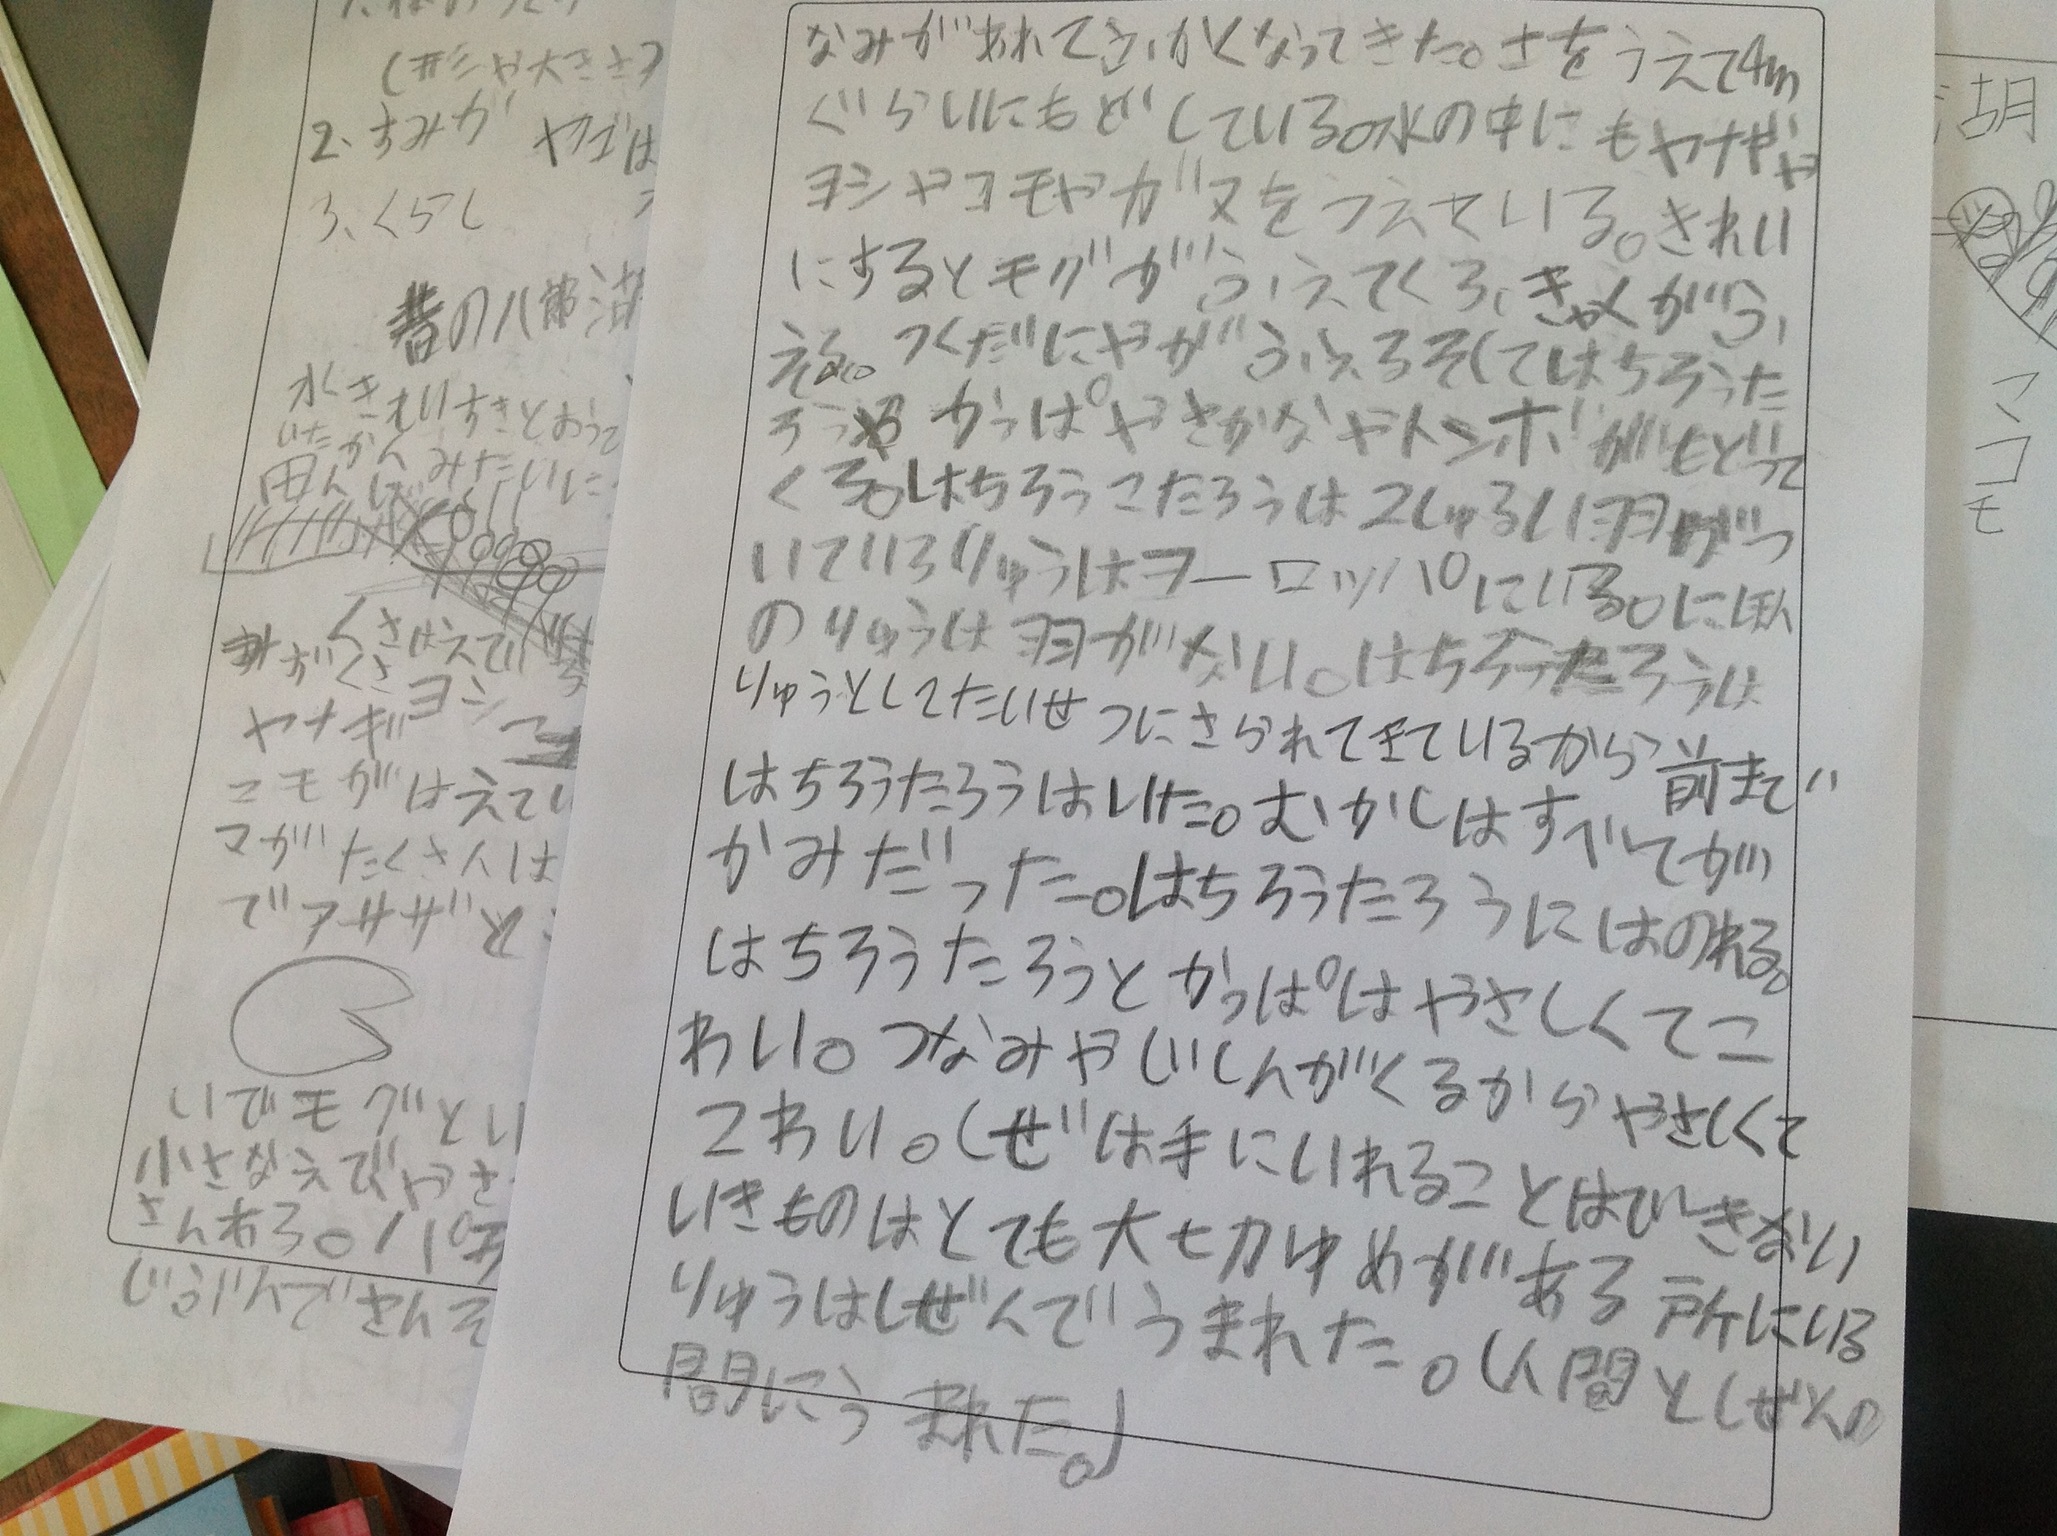 1.
(形や大きさ
2.すみが ヤゴは
3.くらし
昔の八郎湖
水きれいすきとおって
いたかんみたいに
田んぼ
くさはえてい
みずくさ
ヤナギヨシマ
コモがはえてい
マがたくさんは
でアサザと
いでモグとい
小さなえびやさ
さんある。
じゅんでさんそ
なみがあれてふかくなってきた。さをうえて4m
ぐらいにもどしている。水の中にもヤナギや
ヨシやコモやガマをうえている。きれい
にするとモグがふえてくる、きゃくがふ
える。つくだにやがふえるそしてはちろうた
ろうや かっぱやさかなやトンボがもどって
くる。はちろうこたろうは2しゅるい羽がつ
いているりゅうはヨーロッパにいる。にほん
のりゅうは羽がない。はちろうたろうは
りゅうとしてたいせつにさられてきているから前まで
はちろうたろうはいた。むかしはすべてが
かみだった。はちろうたろうにはのれる。
はちろうたろうとかっぱはやさしくてこ
わい。つなみやじしんがくるからやさしくて
こわい。しぜは手にいれることはできない
いきものはとても大切ゆめがある所にいる
りゅうはしぜんでうまれた。(人間としぜんの
間にうまれた。)
湖
マコモ